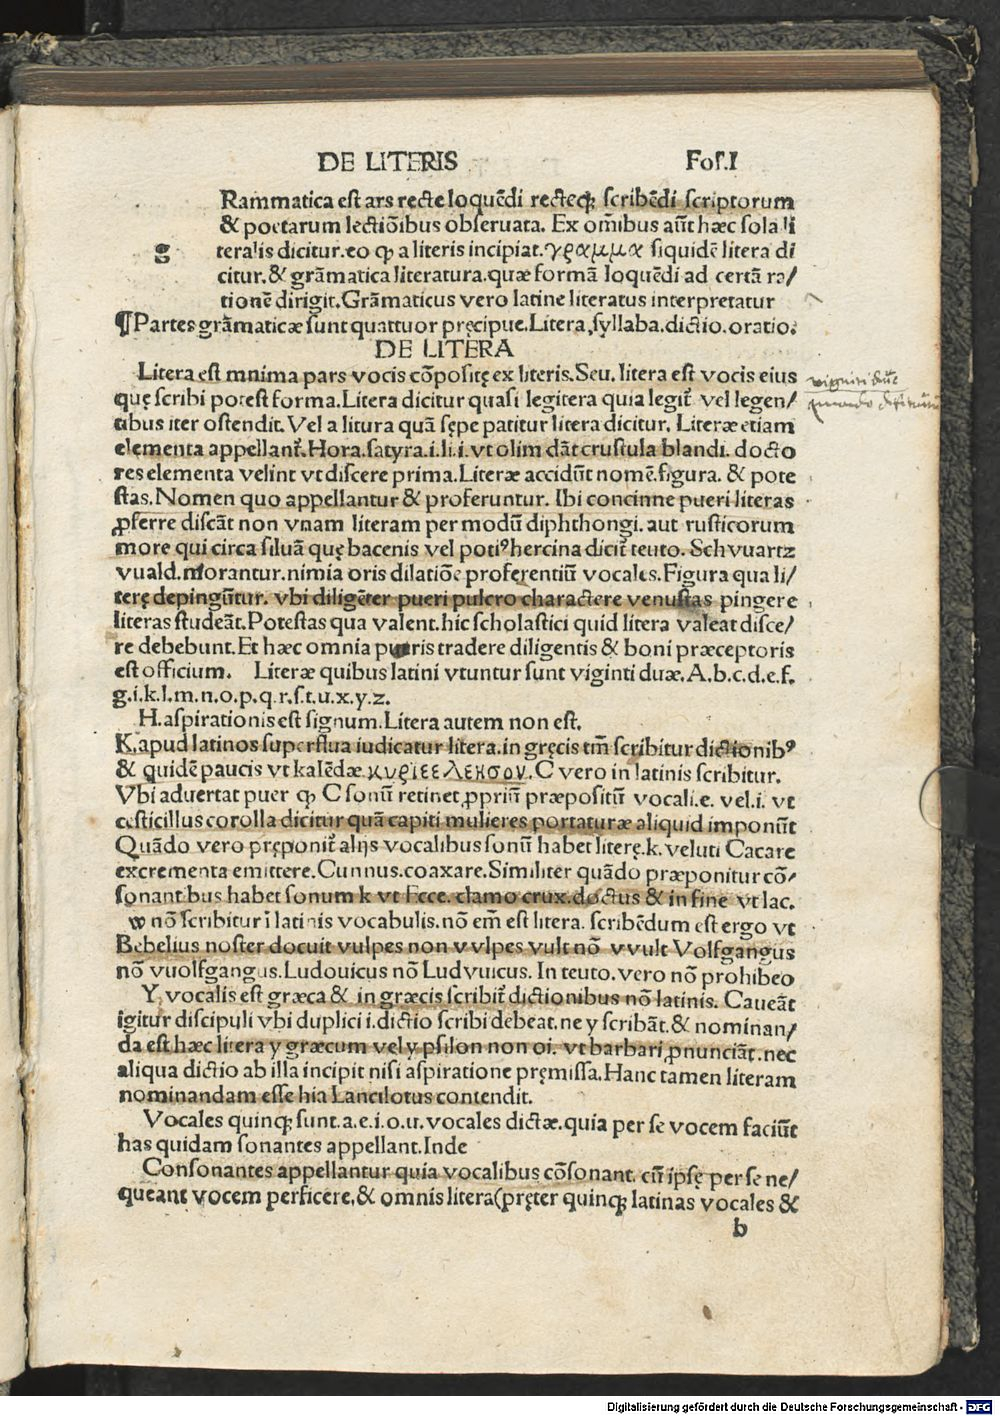 DE LITERIS Fol.I
Rammatica est ars recte loquēdi rectecꝫ scribēdi scriptorum
& poetarum lectiōibus obseruata. Ex om̄ibus aūt hæc sola li
g
teralis dicitur.eo ꝙ a literis incipiat.γραμμα siquidē litera di
citur.& grāmatica literatura.quæ formā loquēdi ad certā ra/
tionē dirigit.Grāmaticus vero latine literatus interpretatur
¶Partes grāmaticæ sunt quattuor pręcipue.Litera,syllaba.dictio.oratio.
DE LITERA
Litera est mnima pars vocis cōpositę ex literis.Seu. litera est vocis eius
quę scribi potest forma.Litera dicitur quasi legitera quia legit᷑ vel legen/
tibus iter ostendit. Vel a litura quā sępe patitur litera dicitur. Literæ etiam
elementa appellant᷑. Hora.satyra.i.li.i.vt olim dāt crustula blandi. docto
res elementa velint vt discere prima.Literæ accidūt nomē.figura. & pote
stas.Nomen quo appellantur & proferuntur. Ibi concinne pueri literas
ꝓferre discāt non vnam literam per modū diphthongi. aut rusticorum
more qui circa siluā quę bacenis vel potiꝰ hercina dicit᷑ teuto. Schvuartz
vuald.morantur.nimia oris dilatiōe proferentiū vocales.Figura qua li/
terę depingūtur. vbi diligēter pueri pulcro charactere venustas pingere
literas studeāt.Potestas qua valent.hic scholastici quid litera valeat disce/
re debebunt.Et hæc omnia pueris tradere diligentis & boni præceptoris
est officium. Literæ quibus latini vtuntur sunt viginti duæ. A.b.c.d.e.f.
g.i.k.l.m.n.o.p.q.r.s.t.u.x.y.z.
H.aspirationis est signum.Litera autem non est.
K.apud latinos superflua iudicatur litera.in gręcis tm̄ scribitur dictionibꝰ
& quidē paucis vt kalēdæ κυριεελεησον. C vero in latinis scribitur.
Vbi aduertat puer ꝙ C sonū retinet ꝓpriū præpositū vocali.e. vel.i. vt
cesticillus corolla dicitur quā capiti mulieres portaturæ aliquid imponūt
Quādo vero pręponit᷑ alijs vocalibus sonū habet literę.k. veluti Cacare
excrementa emittere.Cunnus.coaxare.Similiter quādo præponitur cō/
sonantibus habet sonum k vt Ecce. clamo crux.doctus & in fine vt lac.
w nō scribitur ī latinis vocabulis. nō em̄ est litera. scribēdum est ergo vt
Bebelius noster docuit vulpes non vvlpes vult nō vvult Volfgangus
nō vuolfgangus.Ludouicus nō Ludvuicus. In teuto.vero nō prohibeo
Y vocalis est græca & in græcis scribit᷑ dictionibus nō latinis. Caueāt
igitur discipuli vbi duplici i.dictio scribi debeat.ne y scribāt.& nominan/
da est hæc litera y græcum vel y psilon non oi. vt barbari ꝓnunciāt.nec
aliqua dictio ab illa incipit nisi aspiratione pręmissa.Hanc tamen literam
nominandam esse hia Lancilotus contendit.
Vocales quincꝫ sunt.a.e.i.o.u.vocales dictæ.quia per se vocem faciūt
has quidam sonantes appellant.Inde
Consonantes appellantur quia vocalibus cōsonant. cū ipsę per se ne/
queant vocem perficere,& omnis litera(pręter quincꝫ latinas vocales &
b
Digitalisierung gefördert durch die Deutsche Forschungsgemeinschaft - DFG